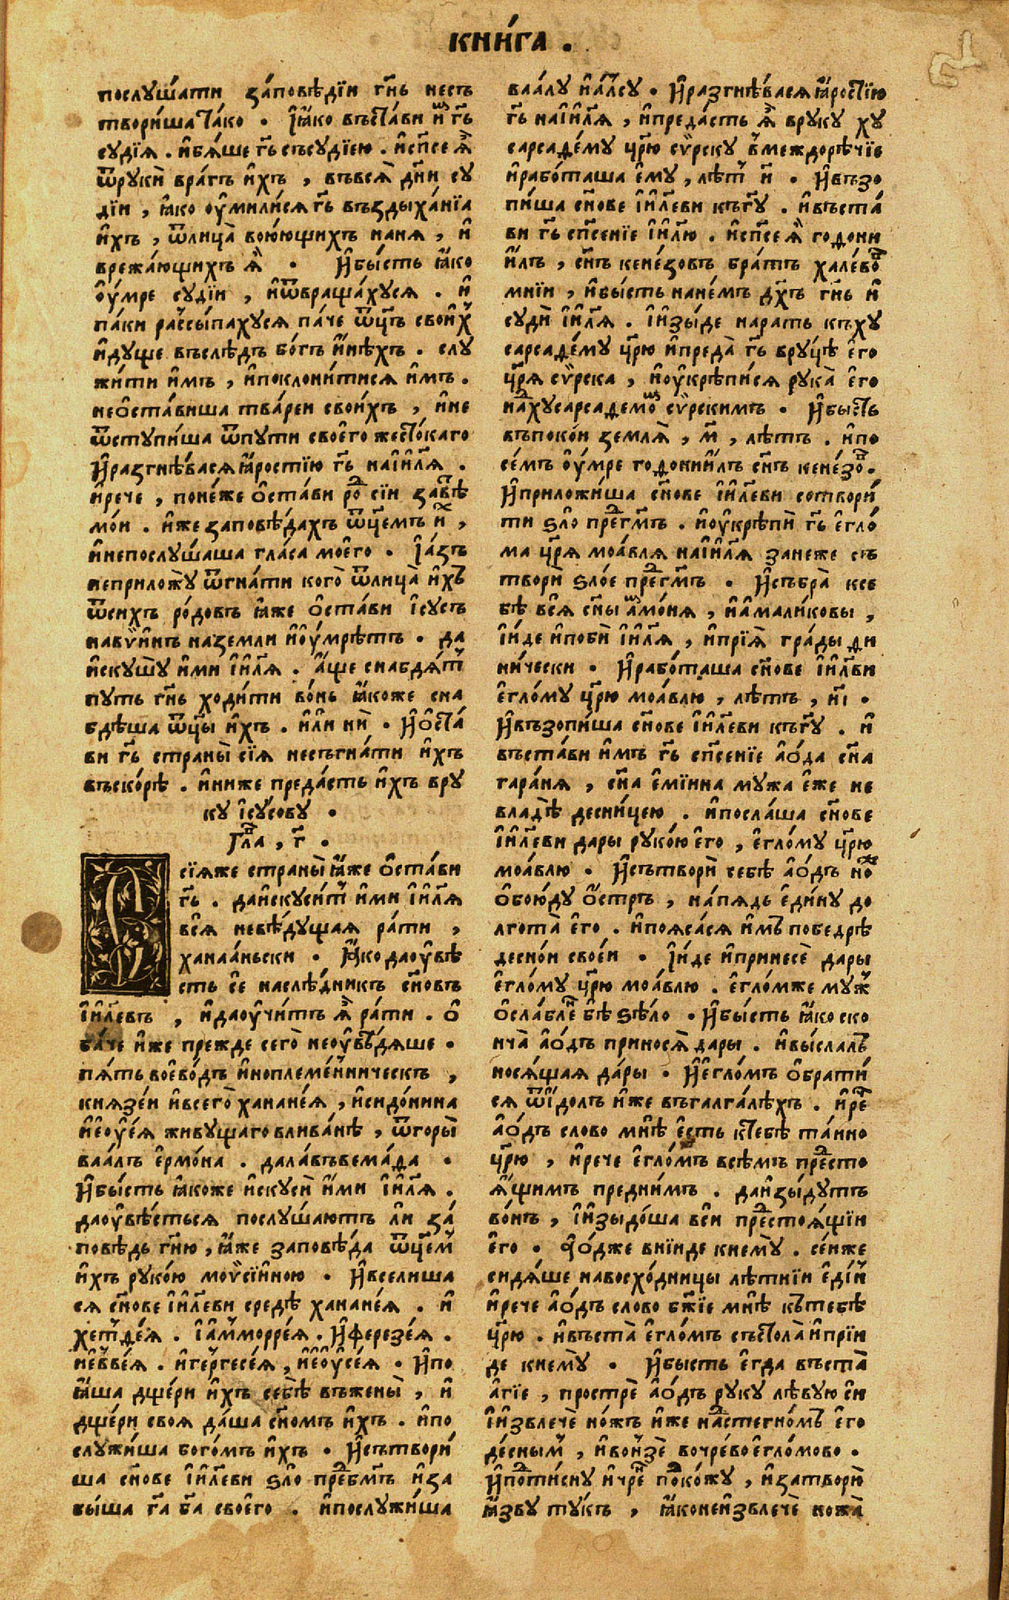 книга .
послꙋшати заповѣдїи гн҃ь несть
твориша тако . І҆ꙗко въстави и҆мъ гь҃
сꙋдїѧ . и҆бѧше гь҃ съсꙋдїею . и҆спсе ѧ҆
ѿрꙋки врагъ и҆хъ , въвсѧ дн҃и сꙋ
дїи , ꙗко оумилисѧ гь҃ въздыханїа
и҆хъ , ѿлица воюющихъ нанѧ , и҆
врежающихъ ѧ҆ . И҆бысть ꙗко
оумре сꙋдїи , и҆ѿвращахꙋсѧ . и҆
паки рассыпахꙋсѧ паче ѿц҃ъ своихъ
и҆дꙋще въслѣдъ богъ и҆нѣхъ . слꙋ
жити и҆мъ , и҆поклонитисѧ и҆мъ .
неѡставиша тварей своихъ , и҆не
ѿстꙋпиша ѿпꙋти своего жестокаго
И҆разгнѣвасѧ ꙗростїю гь҃ наі҆и҃лѧ .
и҆рече , понеже ѡстави ро сїи завѣ
мои . и҆же заповѣдахъ ѿц҃емъ и҆х ,
и҆непослꙋшаша гласа моего . І҆азъ
неприложꙋ ѿгнати кого ѿлица и҆хъ
ѿсихъ родовъ ꙗже ѡстави і҆сꙋсъ
навѵинъ наземли и҆оумрѣтъ . да
и҆скꙋшꙋ и҆ми і҆и҃лѧ . а҆ще снабдѧт
пꙋть гн҃ь ходити вонь ꙗкоже сна
бдѣша ѿц҃ы и҆хъ . и҆ли ни . И҆ѡста
ви гь҃ страны сїѧ несъгнати и҆хъ
въскорѣ . и҆ниже предасть и҆хъврꙋ
кꙋ і҆сꙋсовꙋ .
Гла , г҃ .
Сїѧже страны ꙗже ѡстави
гь҃ . даи҆скꙋсит и҆ми і҆и҃лѧ
всѧ невѣдꙋщаѧ рати ,
ханааньски . Ꙗкодаоувѣ
сть се наслѣдникъ сн҃овъ
і҆и҃левъ , и҆даоучитъ ѧ҆ рати . ѡ
баче и҆же прежде сего неоувѣдѧше .
пѧть воеводъ и҆ноплеменническъ ,
кнѧзеи и҆всего хананеѧ , и҆сидонина
и҆еоуеѧ живꙋщаго вливанѣ , ѿгоры
ваалъ ермона . далавъвемада .
И҆бысть ꙗкоже и҆скꙋси и҆ми і҆и҃лѧ .
даоувѣстьсѧ послꙋшаютъ ли за
повѣдь гн҃ю , ꙗже заповѣда ѿц҃ем
и҆хъ рꙋкою моѵсїиною . И҆вселиша
сѧ сн҃ове і҆и҃леви средѣ хананеѧ . и҆
хетдеѧ . і҆амморреѧ . И҆ферезеѧ .
и҆еввеѧ . и҆гергесеѧ , и҆еоусеѧ . И҆по
ꙗша дщери и҆хъ себѣ въжены , и҆
дщери своѧ даша сн҃омъ и҆хъ . и҆по
слꙋжиша богомъ и҆хъ . И҆сътвори
ша сн҃ове і҆и҃леви ѕло пребмъ и҆за
быша га҃ ба҃ своего . и҆послꙋжиша
ваалꙋ и҆алсꙋ . И҆разгнѣвасѧ ꙗростїю
гь҃ наі҆и҃лѧ , и҆предасть ѧ҆ врꙋкꙋ хꙋ
сарсадемꙋ цр҃ю сѵрскꙋ в междорѣчїе
и҆работаша емꙋ , лѣт и҃ . И҆възо
пиша сн҃ове і҆и҃леви къгꙋ҃ . и҆въста
ви гь҃ сп҃сенїе і҆и҃лю . и҆спсе ѧ҆ годони
и҆лъ , сн҃ъ кенезовъ братъ халевов
мнїи , и҆бысть нанемъ дх҃ъ гн҃ь и҆
сꙋди і҆и҃лѧ . і҆изыде нарать къхꙋ
сарсадемꙋ цр҃ю и҆преда гь҃ врꙋцѣ его
цр҃ѧ сѵрска , и҆оукрѣписѧ рꙋка его
надхꙋсарсадемом сѵрскимъ . И҆бысть
въпокои землѧ , м҃ , лѣтъ . и҆по
семъ оумре годониилъ сн҃ъ кенезов .
И҆приложиша сн҃ове і҆и҃леви сотвори
ти ѕло предгмъ . и҆оукрѣпи гь҃ егло
ма цр҃ѧ моавлѧ наі҆и҃лѧ занеже съ
твори ѕлое предгмъ . И҆събра ксе
бѣ всѧ сн҃ы аммонѧ , и҆амаликовы ,
і҆иде и҆поби і҆и҃лѧ , и҆прїѧ грады ди
нически . И҆работаша сн҃ове і҆и҃леви
егломꙋ цр҃ю моавлю , лѣтъ , и҃і .
И҆възопиша сн҃ове і҆и҃леви къгꙋ҃ . и҆
въстави и҆мъ гь҃ сп҃сенїе аѡда сн҃а
гаранѧ , сн҃а емїина мꙋжа еже не
владѣ десницею . и҆послаша сн҃ове
і҆и҃леви дары рꙋкою его , егломꙋ цр҃ю
моавлю . И҆сътвори себѣ аѡдъ нож
ѡбоюдꙋ ѡстръ , напѧдь единꙋ до
лгота его . и҆поѧсасѧ и҆мъ победрѣ
деснои своеи . І҆иде и҆принесе дары
егломꙋ цр҃ю моавлю . егломже мꙋж
ѡслабле бѣ ѕѣло . И҆бысть ꙗко ско
нча аѡдъ приносѧ дары . и҆выслалъ
носѧщаѧ дары . И҆егломъ ѡбрати
сѧ ѿидолъ и҆же въгалгалѣхъ . и҆рече
аѡдъ слово мнѣ есть ктебѣ таино
цр҃ю , и҆рече егломъ всѣмъ предсто
ѧщимъ предними . даи҆зыдꙋтъ
вонъ , і҆изыдоша вси предстоѧщїи
его . Аѡдже внїиде кнемꙋ . сеиже
сидѧше навосходницы лѣтнїи един
и҆рече аѡдъ слово бж҃їе мнѣ ктебѣ
цр҃ю . и҆въста егломъ състола и҆прїи
де кнемꙋ . И҆бысть егда въста
агїе , простре аѡдъ рꙋкꙋ лѣвꙋю си
і҆извлече ножъ и҆же настегномъ его
десным , и҆вонзе вочрево егломово .
И҆потиснꙋ и҆чре покожꙋ , и҆затвори
ꙗзвꙋ тꙋкъ , ꙗконеизвлече ножа